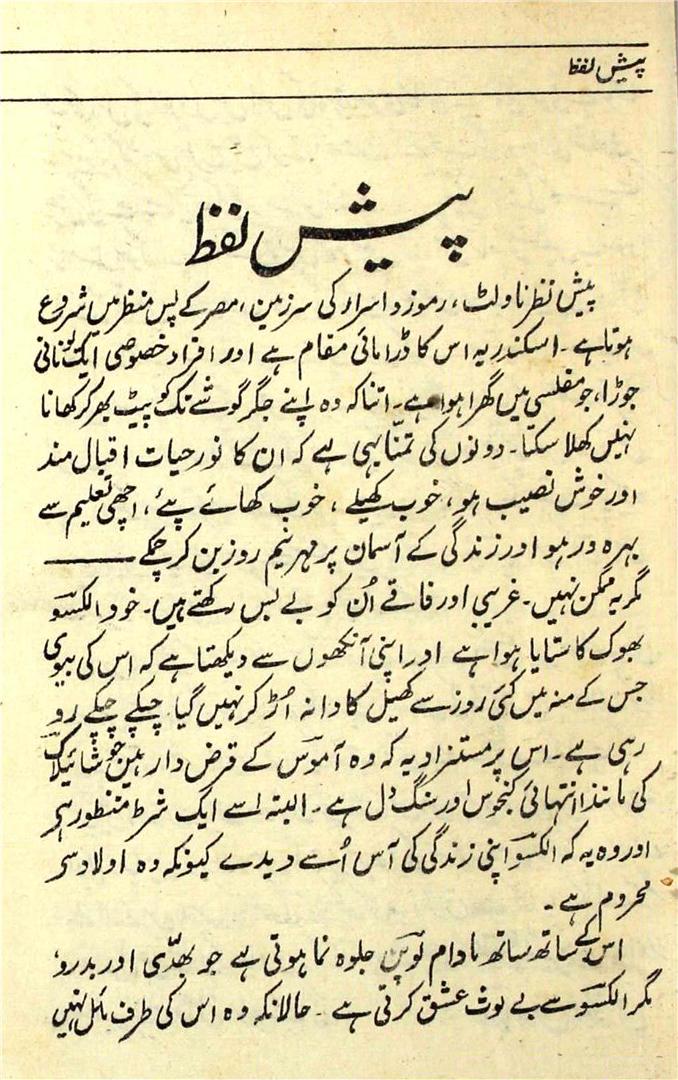 پیش لفظ
پیش لفظ
پیش نظر ناولٹ، رموز و اسرار کی سرزمین، مصر کے پس منظر میں شروع
ہوتا ہے۔ اسکندریہ اس کا ڈرامائی مقام ہے اور افراد خصوصی ایک یونانی
جوڑا، جو مفلسی میں گھرا ہوا ہے۔ اتنا کہ وہ اپنے جگر گوشے تک کو پیٹ بھر کر کھانا
نہیں کھلا سکتا۔ دونوں کی تمنّا یہی ہے کہ ان کا نور حیات اقبال مند
اور خوش نصیب ہو، خوب کھیلے، خوب کھائے پیئے، اچھی تعلیم سے
بہرہ ور ہو اور زندگی کے آسمان پر مہر نیم روز بن کر چمکے ـــــــــ
مگر یہ ممکن نہیں۔ غریبی اور فاقے اُن کو بے بس رکھتے ہیں۔ خود الکسو
بھوک کا ستایا ہوا ہے اور اپنی آنکھوں سے دیکھتا ہے کہ اس کی بیوی
جس کے منہ میں کئی روز سے کھیل کا دانہ اُڑ کر نہیں گیا چپکے چپکے رو
رہی ہے۔ اس پر مستزاد یہ کہ وہ آموس کے قرض دار ہیں جو شائیلاک
کی مانند انتہائی کنجوس اور سنگ دل ہے۔ البتہ اسے ایک شرط منظور ہے
اور وہ یہ کہ الکسو اپنی زندگی کی آس اُسے دیدے کیونکہ وہ اولاد سے
محروم ہے۔
اس کے ساتھ ساتھ مادام جلوہ نما ہوتی ہے جو بھدّی اور بدرو،
مگر الکسو سے بے لوث عشق کرتی ہے۔ حالانکہ وہ اس کی طرف مائل نہیں